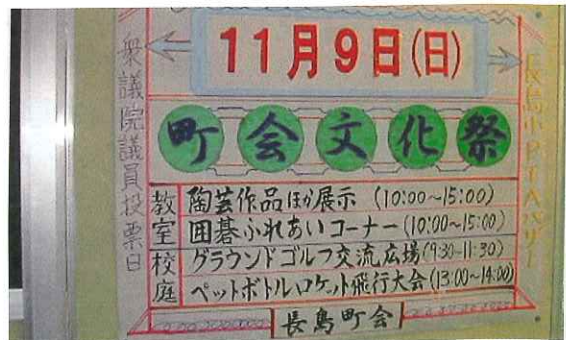 11月9日(日)
衆議院議員投票日
長島小PTAバザー
町会文化祭
教室
陶芸作品ほか展示 (10:00~15:00)
囲碁ふれあいコーナー (10:00~15:00)
校庭
グラウンドゴルフ交流広場 (9:30~11:30)
ペットボトルロケット飛行大会 (13:00~14:00)
長島町会